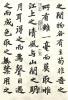 之間物各有主苟非吾之
所有雖一毫而莫取惟
江上之清風與山間之明
月耳得之而為聲目遇之
而成色取之無禁用